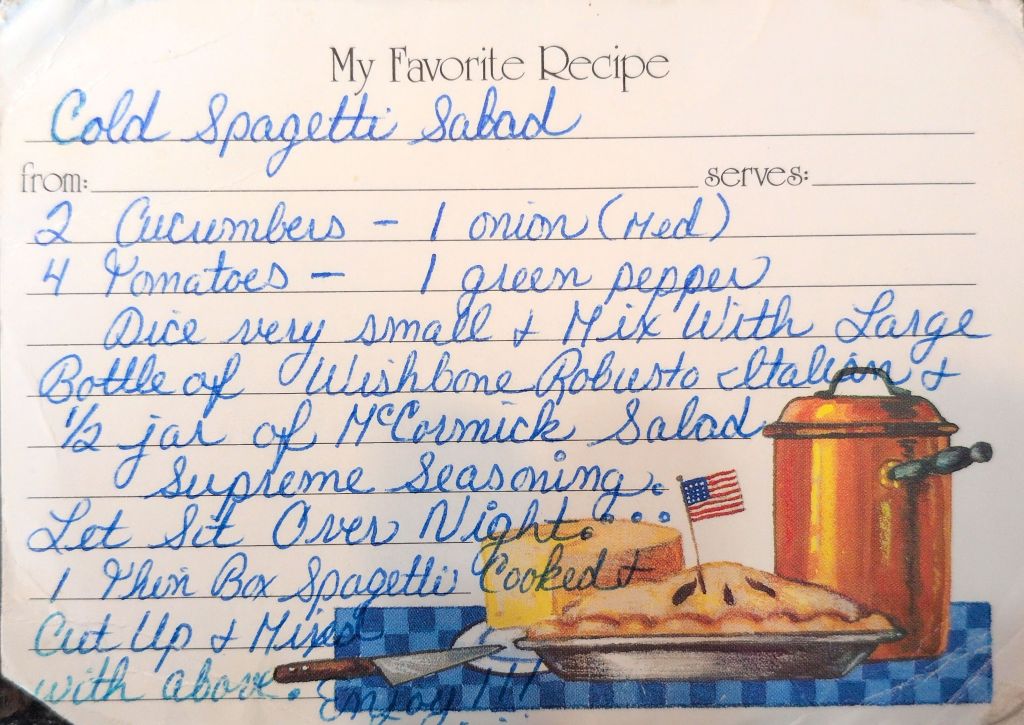 My Favorite Recipe
Cold Spagetti Salad
from: serves:
2 Cucumbers - 1 onion (Med)
4 Tomatoes - 1 green pepper
Dice very small & Mix With Large
Bottle of Wishbone Robusto Italian &
1/2 jar of McCormick Salad
Supreme Seasoning.
Let Sit Over Night....
1 Thin Box Spagetti Cooked &
Cut Up & Mixed
with above. Enjoy!!!